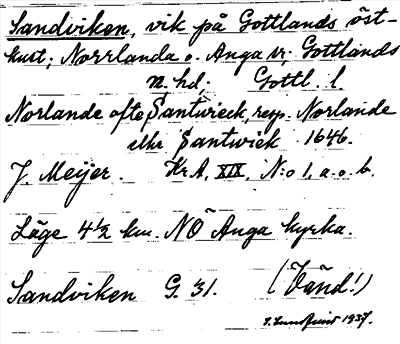 Sandviken, vik på Gottlands öst-
kust; Norrlanda o. Anga sr, Gottlands
n. hd; Gottl. l.
Norlande ofte Santwieck, resp. Norlande
eller Santwiek 1646.
J. Meijer. Kr.A. XIX, N:o 1, a. o. b.
Läge 4½ km. NÖ Anga kyrka.
Sandviken G. 31. (Vänd!)
Lundqvist 1937.